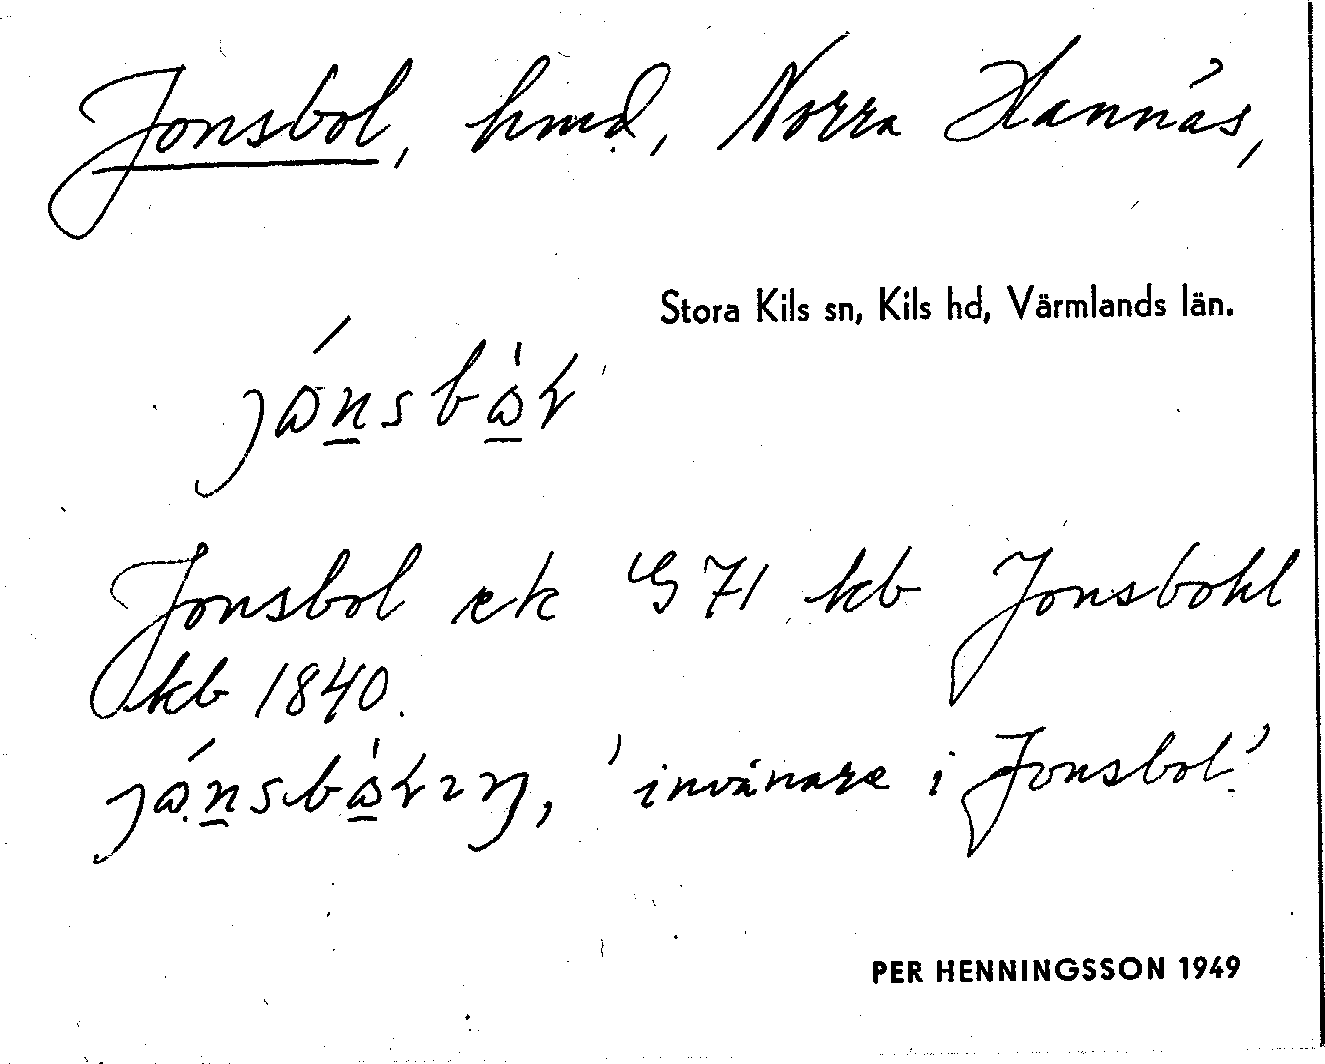 Jonsbol, hmd, Norra Hannäs,
Stora Kils sn, Kils hd, Värmlands län.
Jonsbol ek G 71 kb Jonsbohl
kb 1840.
'invånare i Jonsbol.'
PER HENNINGSSON 1949